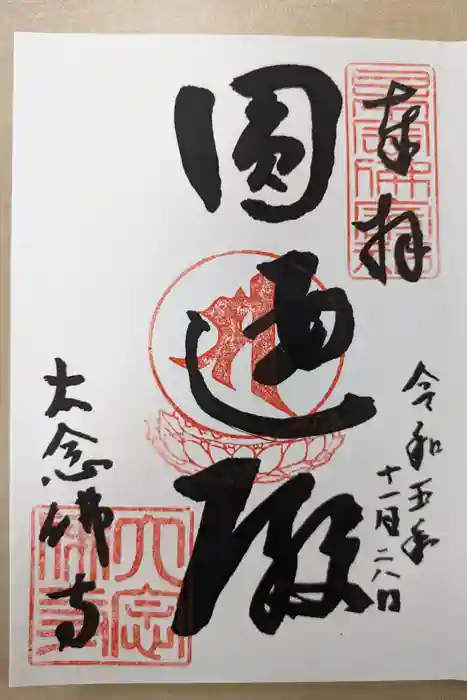 奉拝
令和五年
十一月二八日
圓通殿
大念佛寺
大念佛寺